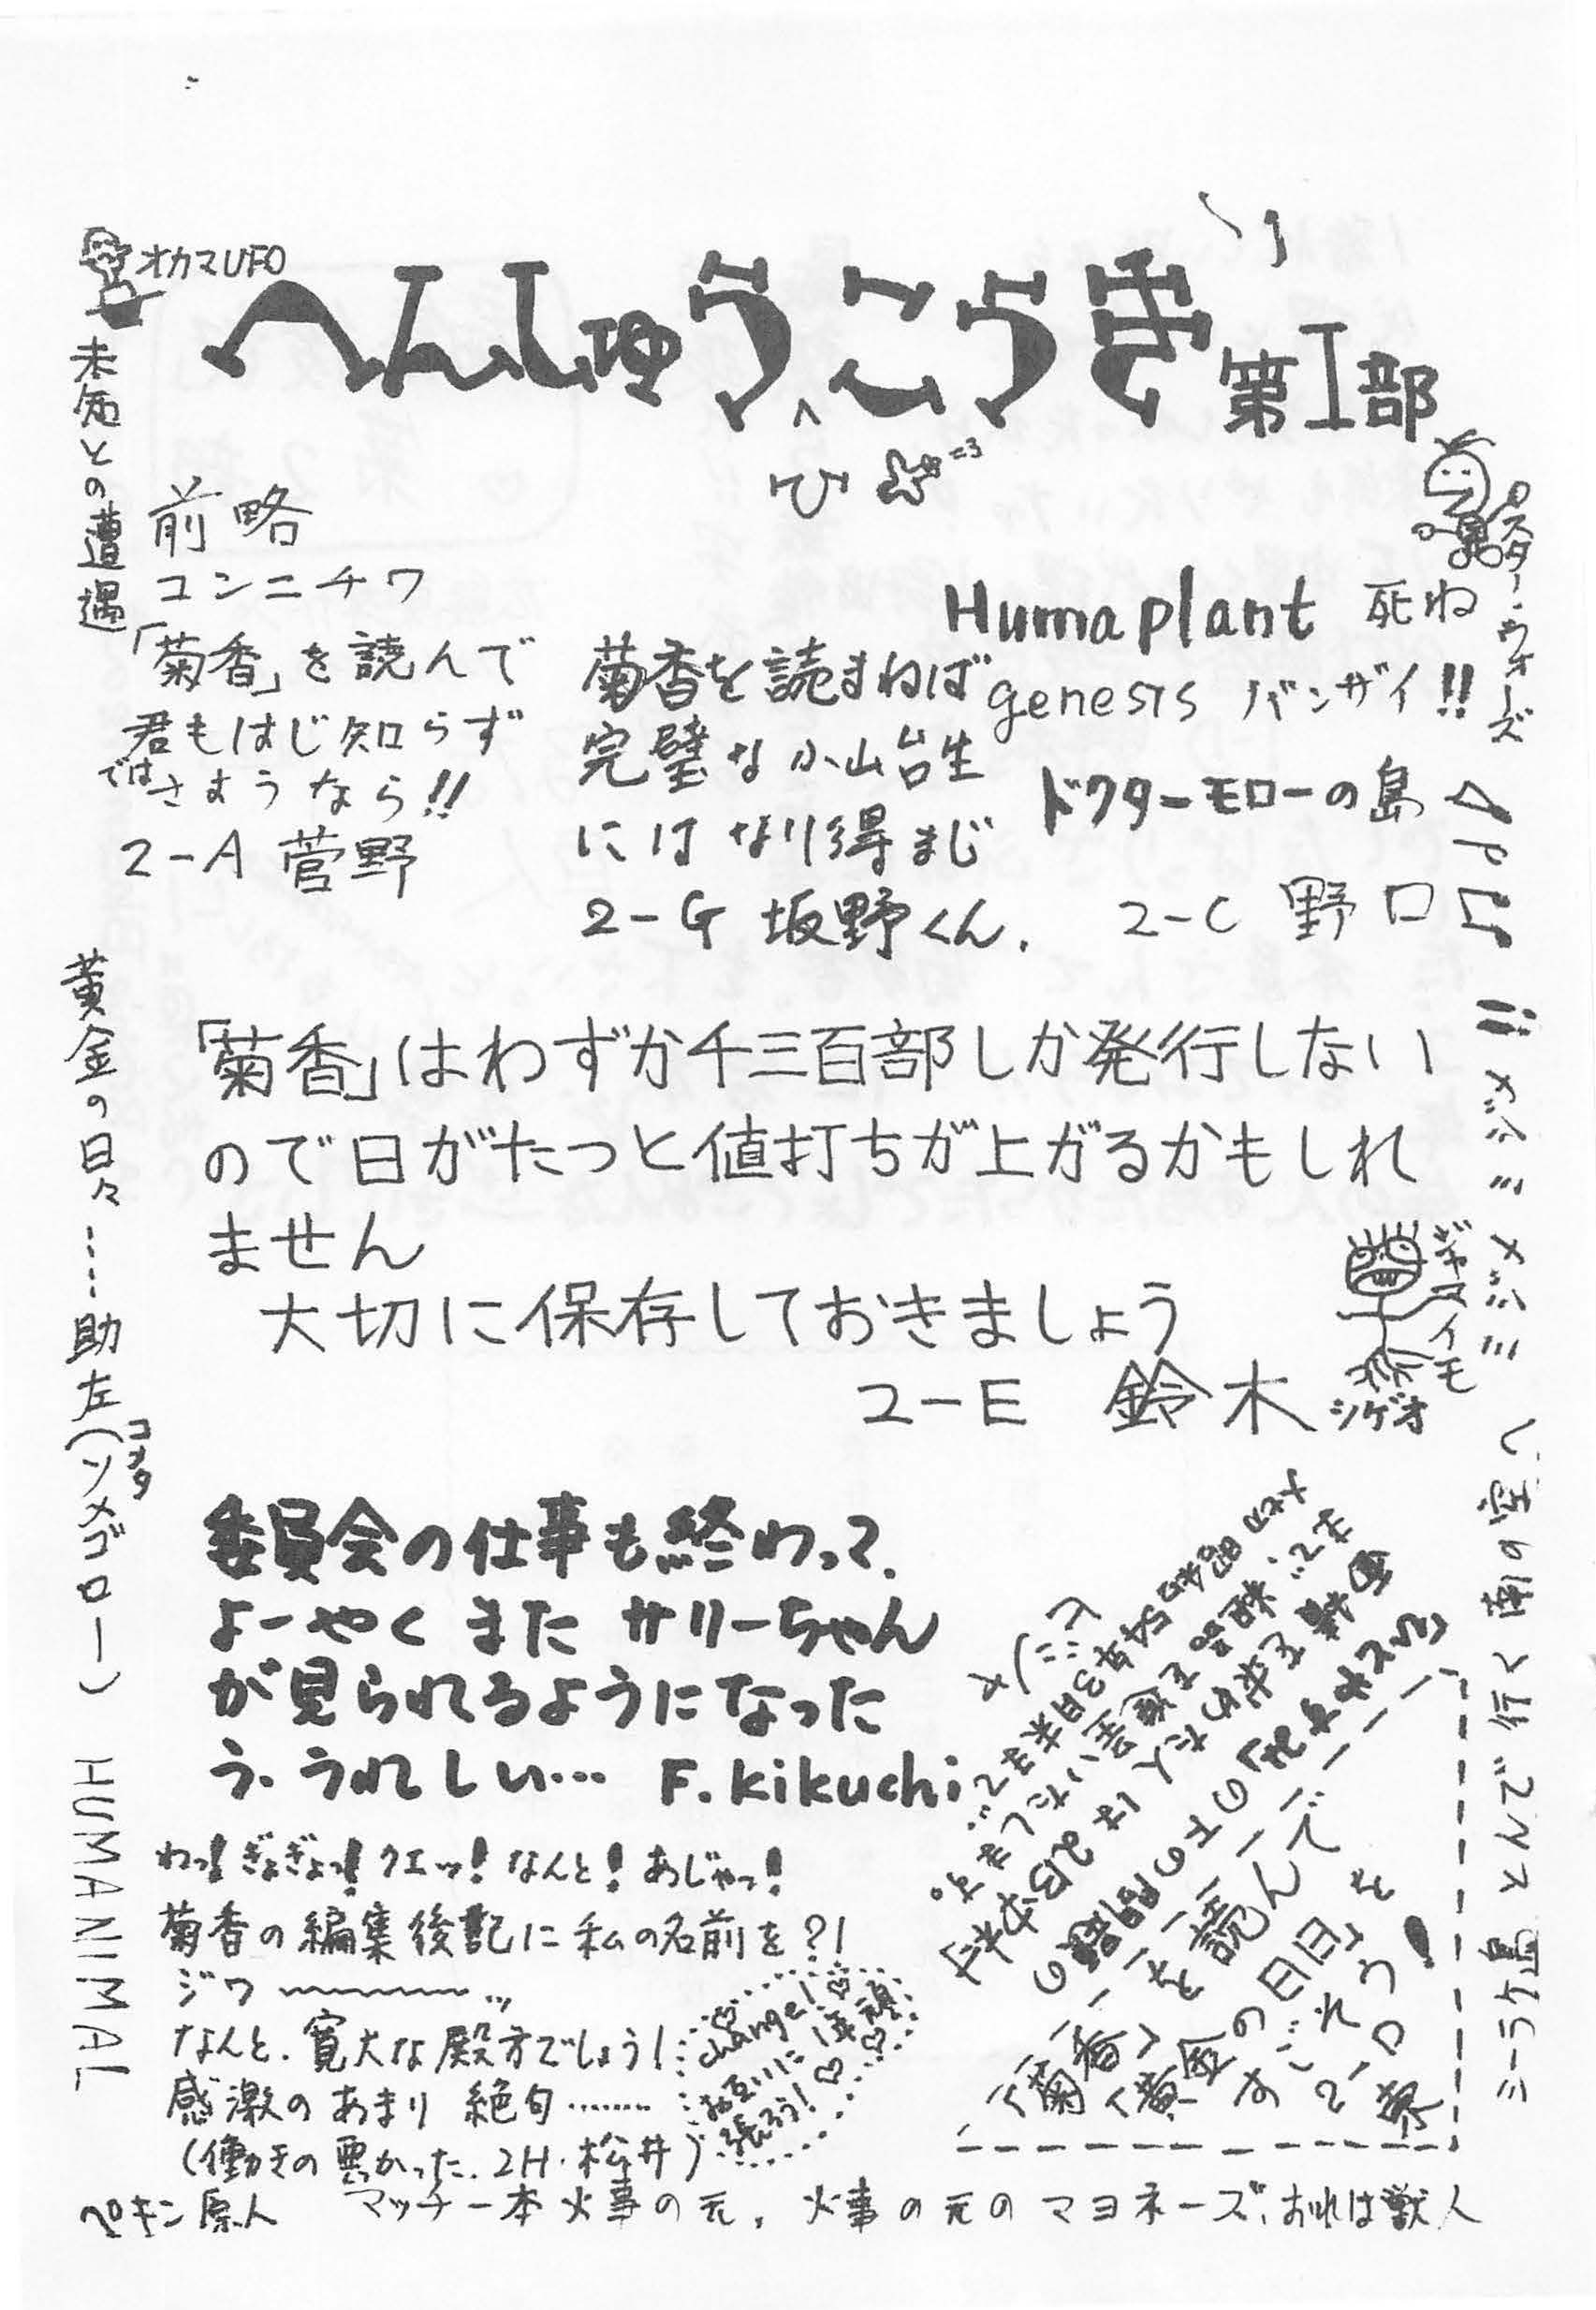 オカマUFO
へんしゅうこうき 第I部
ひ
未知との遭遇
前略
コンニチワ
「菊香」を読んで
君もはじ知らず
ではさようなら!!
2-A 菅野
菊香を読まねば
完璧な小山台生
にはなり得まじ
2-G 坂野くん.
Humaplant 死ね
genesis バンザイ!!
ドクターモローの島
2-C 野口
スター・ウォーズ
黄金の日々……助左(ソメゴロー)
「菊香」はわずか千三百部しか発行しない
ので日がたつと値打ちが上がるかもしれ
ません
大切に保存しておきましょう
2-E 鈴木
シゲオ
委員会の仕事も終わって.
よーやく また サリーちゃん
が見られるようになった
う.うれしい… F.kikuchi
わっ!ぎょぎょっ!クエッ!なんと!あじゃっ!
菊香の編集後記に私の名前を?!
ジワ
なんと.寛大な殿方でしょう!
感激のあまり 絶句………
(働きの悪かった.2H.松井)
change!
お互いに頑
張ろう!
〈菊香〉を読んで
〈黄金の日日〉を
HUMANIMAL
ミーラケ島 とんで行く 南の空し
ペキン原人 マッチ一本火事の元, 火事の元のマヨネーズ,おれは獣人